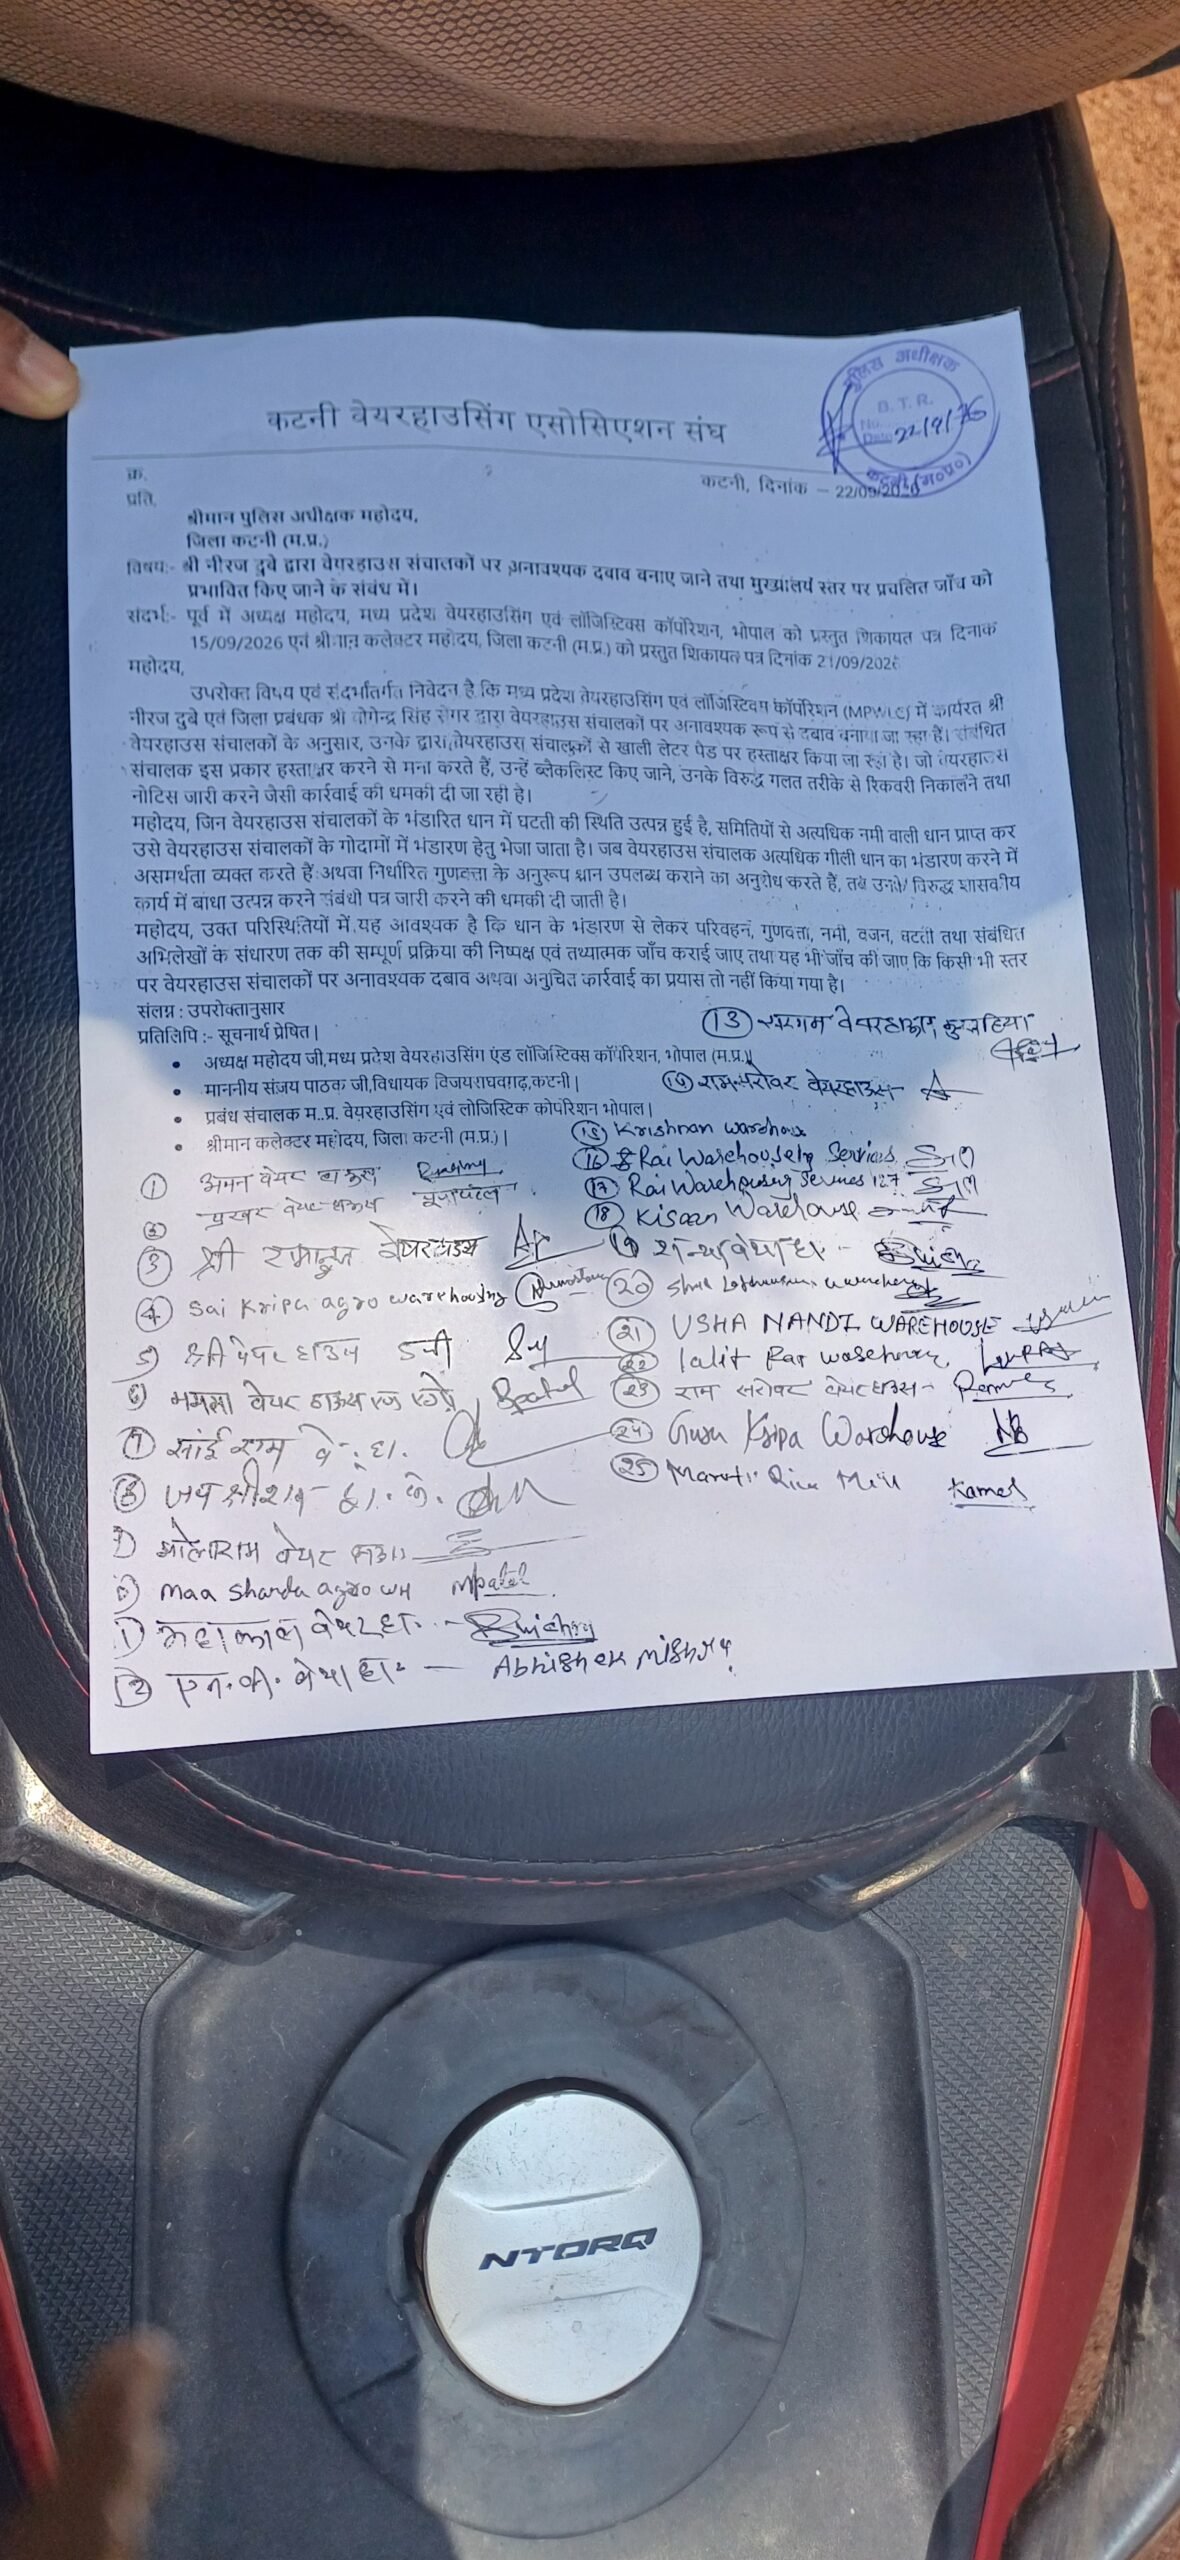 कटनी वेयरहाउसिंग एसोसिएशन संघ
पुलिस अधीक्षक
B.T.R.
No.
Date 22/9/26
कटनी (म०प्र०)
क्र.
कटनी, दिनांक – 22/09/2026
प्रति,
श्रीमान पुलिस अधीक्षक महोदय,
जिला कटनी (म.प्र.)
विषयः- श्री नीरज दुबे द्वारा वेयरहाउस संचालकों पर अनावश्यक दबाव बनाए जाने तथा मुख्यालय स्तर पर प्रचलित जाँच को
प्रभावित किए जाने के संबंध में।
संदर्भः- पूर्व में अध्यक्ष महोदय, मध्य प्रदेश वेयरहाउसिंग एवं लॉजिस्टिक्स कॉर्पोरेशन, भोपाल को प्रस्तुत शिकायत पत्र दिनांक
15/09/2026 एवं श्रीमान कलेक्टर महोदय, जिला कटनी (म.प्र.) को प्रस्तुत शिकायत पत्र दिनांक 21/09/2026
महोदय,
उपरोक्त विषय एवं संदर्भांतर्गत निवेदन है कि मध्य प्रदेश वेयरहाउसिंग एवं लॉजिस्टिक्स कॉर्पोरेशन (MPWLC) में कार्यरत श्री
नीरज दुबे एवं जिला प्रबंधक श्री योगेन्द्र सिंह सेंगर द्वारा वेयरहाउस संचालकों पर अनावश्यक रूप से दबाव बनाया जा रहा है। संबंधित
वेयरहाउस संचालकों के अनुसार, उनके द्वारा वेयरहाउस संचालकों से खाली लेटर पैड पर हस्ताक्षर किया जा रहा है। जो वेयरहाउस
संचालक इस प्रकार हस्ताक्षर करने से मना करते हैं, उन्हें ब्लैकलिस्ट किए जाने, उनके विरुद्ध गलत तरीके से रिकवरी निकालने तथा
नोटिस जारी करने जैसी कार्रवाई की धमकी दी जा रही है।
महोदय, जिन वेयरहाउस संचालकों के भंडारित धान में घटती की स्थिति उत्पन्न हुई है, समितियों से अत्यधिक नमी वाली धान प्राप्त कर
उसे वेयरहाउस संचालकों के गोदामों में भंडारण हेतु भेजा जाता है। जब वेयरहाउस संचालक अत्यधिक गीली धान का भंडारण करने में
असमर्थता व्यक्त करते हैं अथवा निर्धारित गुणवत्ता के अनुरूप धान उपलब्ध कराने का अनुरोध करते हैं, तब उनके विरुद्ध शासकीय
कार्य में बाधा उत्पन्न करने संबंधी पत्र जारी करने की धमकी दी जाती है।
महोदय, उक्त परिस्थितियों में यह आवश्यक है कि धान के भंडारण से लेकर परिवहन, गुणवत्ता, नमी, वजन, घटती तथा संबंधित
अभिलेखों के संधारण तक की सम्पूर्ण प्रक्रिया की निष्पक्ष एवं तथ्यात्मक जाँच कराई जाए तथा यह भी जाँच की जाए कि किसी भी स्तर
पर वेयरहाउस संचालकों पर अनावश्यक दबाव अथवा अनुचित कार्रवाई का प्रयास तो नहीं किया गया है।
संलग्न : उपरोक्तानुसार
प्रतिलिपि :- सूचनार्थ प्रेषित।
• अध्यक्ष महोदय जी,मध्य प्रदेश वेयरहाउसिंग एंड लॉजिस्टिक्स कॉर्पोरेशन, भोपाल (म.प्र.)।
• माननीय संजय पाठक जी,विधायक विजयराघवगढ़,कटनी।
• प्रबंध संचालक म..प्र. वेयरहाउसिंग एवं लोजिस्टिक कोर्पोरेशन भोपाल।
• श्रीमान कलेक्टर महोदय, जिला कटनी (म.प्र.)|
① अमन वेयर हाऊस
② प्रखर वेयर हाऊस
③ श्री रामानुज वेयरहाउस
④ Sai Kripa agro warehousing
5) श्री वेयर हाउस
⑥ ममता वेयर हाऊस
⑦ सांई राम वे. हा.
⑧ जय श्री राम
9) भोलाराम वेयर हाऊस
10) maa sharda agro WH mpatel
11) महाकाल वेयर हा.
12) एन.वी. वेयर हा. — Abhishek mishra
⑬ सरगम वेयरहाऊस
⑭ रामसरोवर वेयरहाउस-
⑮ Krishnan warehouse
⑯ Rai Warehouseing Services
⑰ Rai Warehousing Services 127
⑱ Kisaan Warehouse
⑲
⑳ warehouse
㉑ USHA NANDI WAREHOUSE
㉒ lalit Rai warehouse
㉓ राम सरोवर वेयरहाउस-
㉔ Guru Kripa Warehouse
㉕ Maruti Rice Mill Kamal
NTORQ